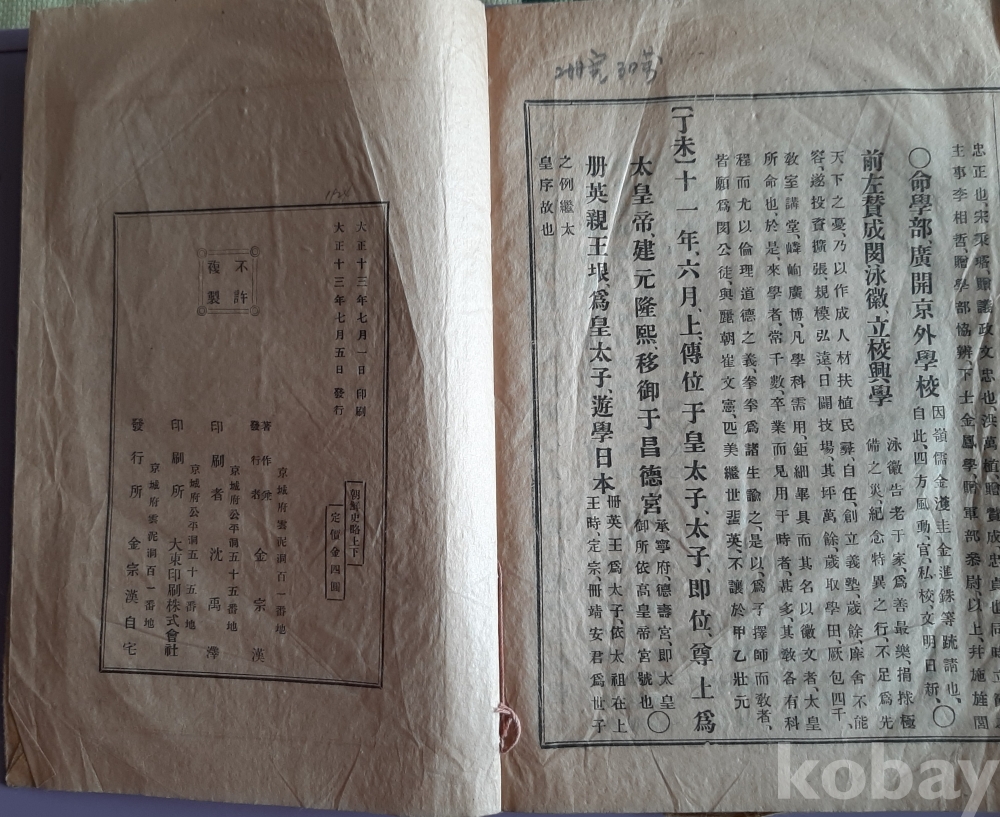 忠正也、宋秉璿、贈議政文忠也、洪萬植、贈贊成忠貞也、同時
主事李相哲、贈學部協辨、下士金鳳學、贈軍部叅尉、以上、幷施旌閭
〇命學部、廣開京外學校
因嶺儒金
金進銖等疏請也、
自此四方風動、官、私校、文明日新、〇
前左贊成閔泳徽、立校興學
泳徽告老于家、爲善最樂、捐捄極
備之災、紀念特異之行、不足爲先
天下之憂、乃以作成人材扶植民彛自任創立義塾、歲餘、庠舍不能
容、遂投資擴張、規模弘遠、日闢技場其坪萬餘、歲取學田、厥包四千、
敎室講堂、嶙峋廣博、凡學科需用、鉅細畢具而其名以徽文者、太皇
所命也、於是、來學者、常千數、卒業而見用于時者、甚多、其敎各有科
程而尤以倫理道德之義、拳拳爲諸生諭之、是以、爲子擇師而敎者、
皆願爲閔公徒、與麗朝崔文憲、匹美繼世蜚英、不讓於甲乙壯元
【丁未】十一年、六月、上、傳位于皇太子、太子、卽位、尊上爲
太皇帝、建元隆熙、移御于昌德宮
承寧府、德壽宮、卽太皇
御所依高皇帝宮號也〇
册英親王垠、爲皇太子、遊學日本
册英王爲太子、依太祖在上
王時、定宗、册靖安君爲世子
之例繼太
皇序故也
不許
複製
大正十三年七月一日 印刷
大正十三年七月五日 發行
朝鮮史略上下
定價金四圓
京城府雲泥洞百一番地
著作兼
發行者 金宗漢
京城府公平洞五十五番地
印刷者 沈禹澤
京城府公平洞五十五番地
印刷所 大東印刷株式會社
京城府雲泥洞百一番地
發行所 金宗漢自宅
kobay